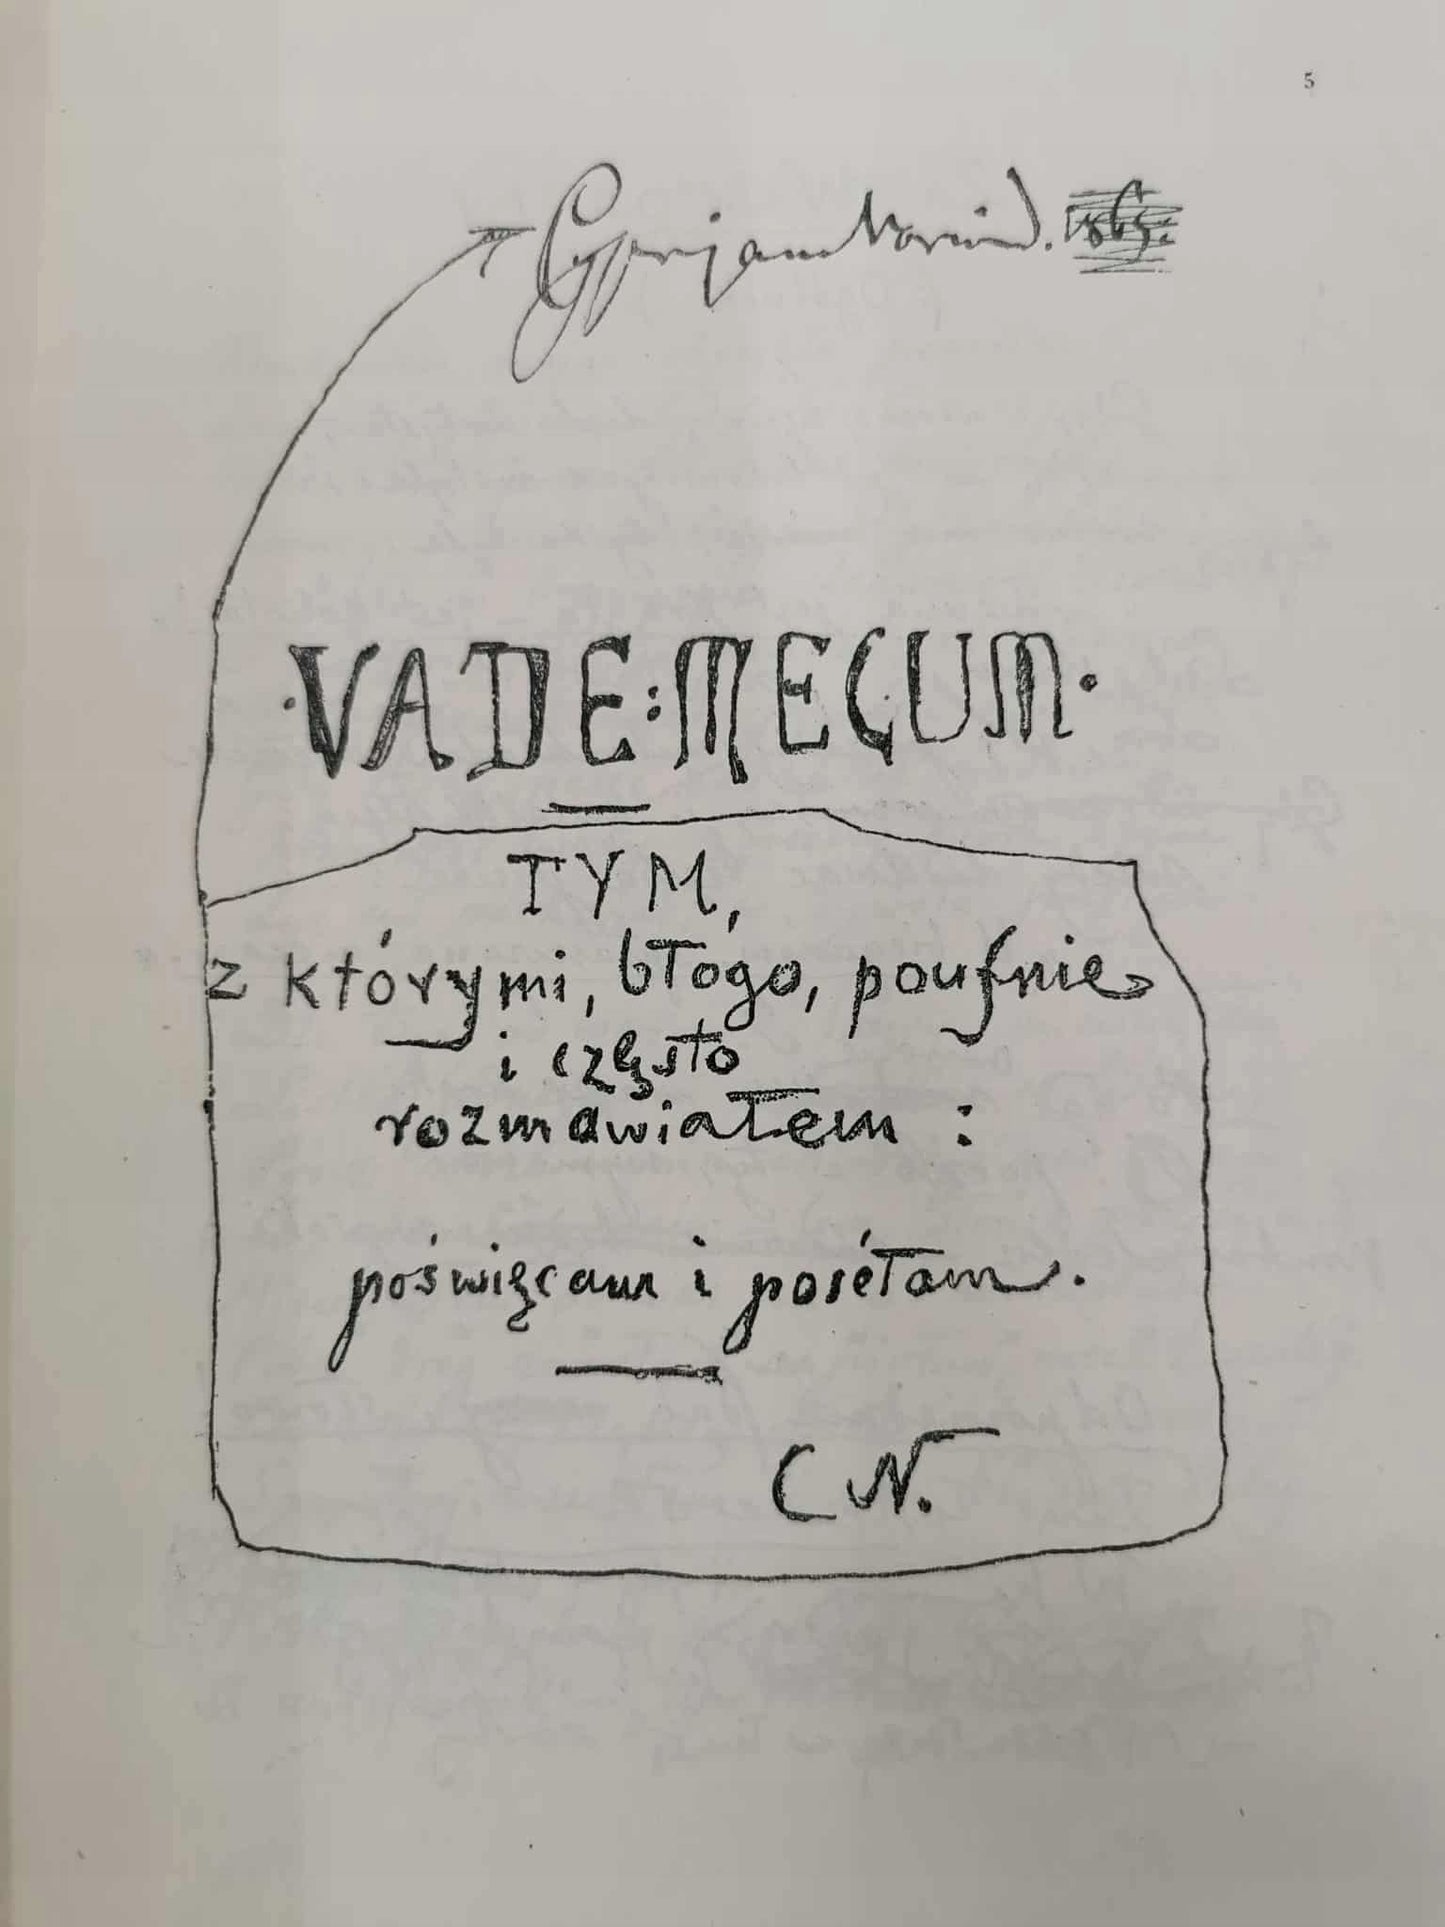 5
Cyprjan Norwid.
·VADE:MECUM·
TYM,
z którymi, błogo, poufnie
i często
rozmawiałem :
poświęcam i posełam.
CN.